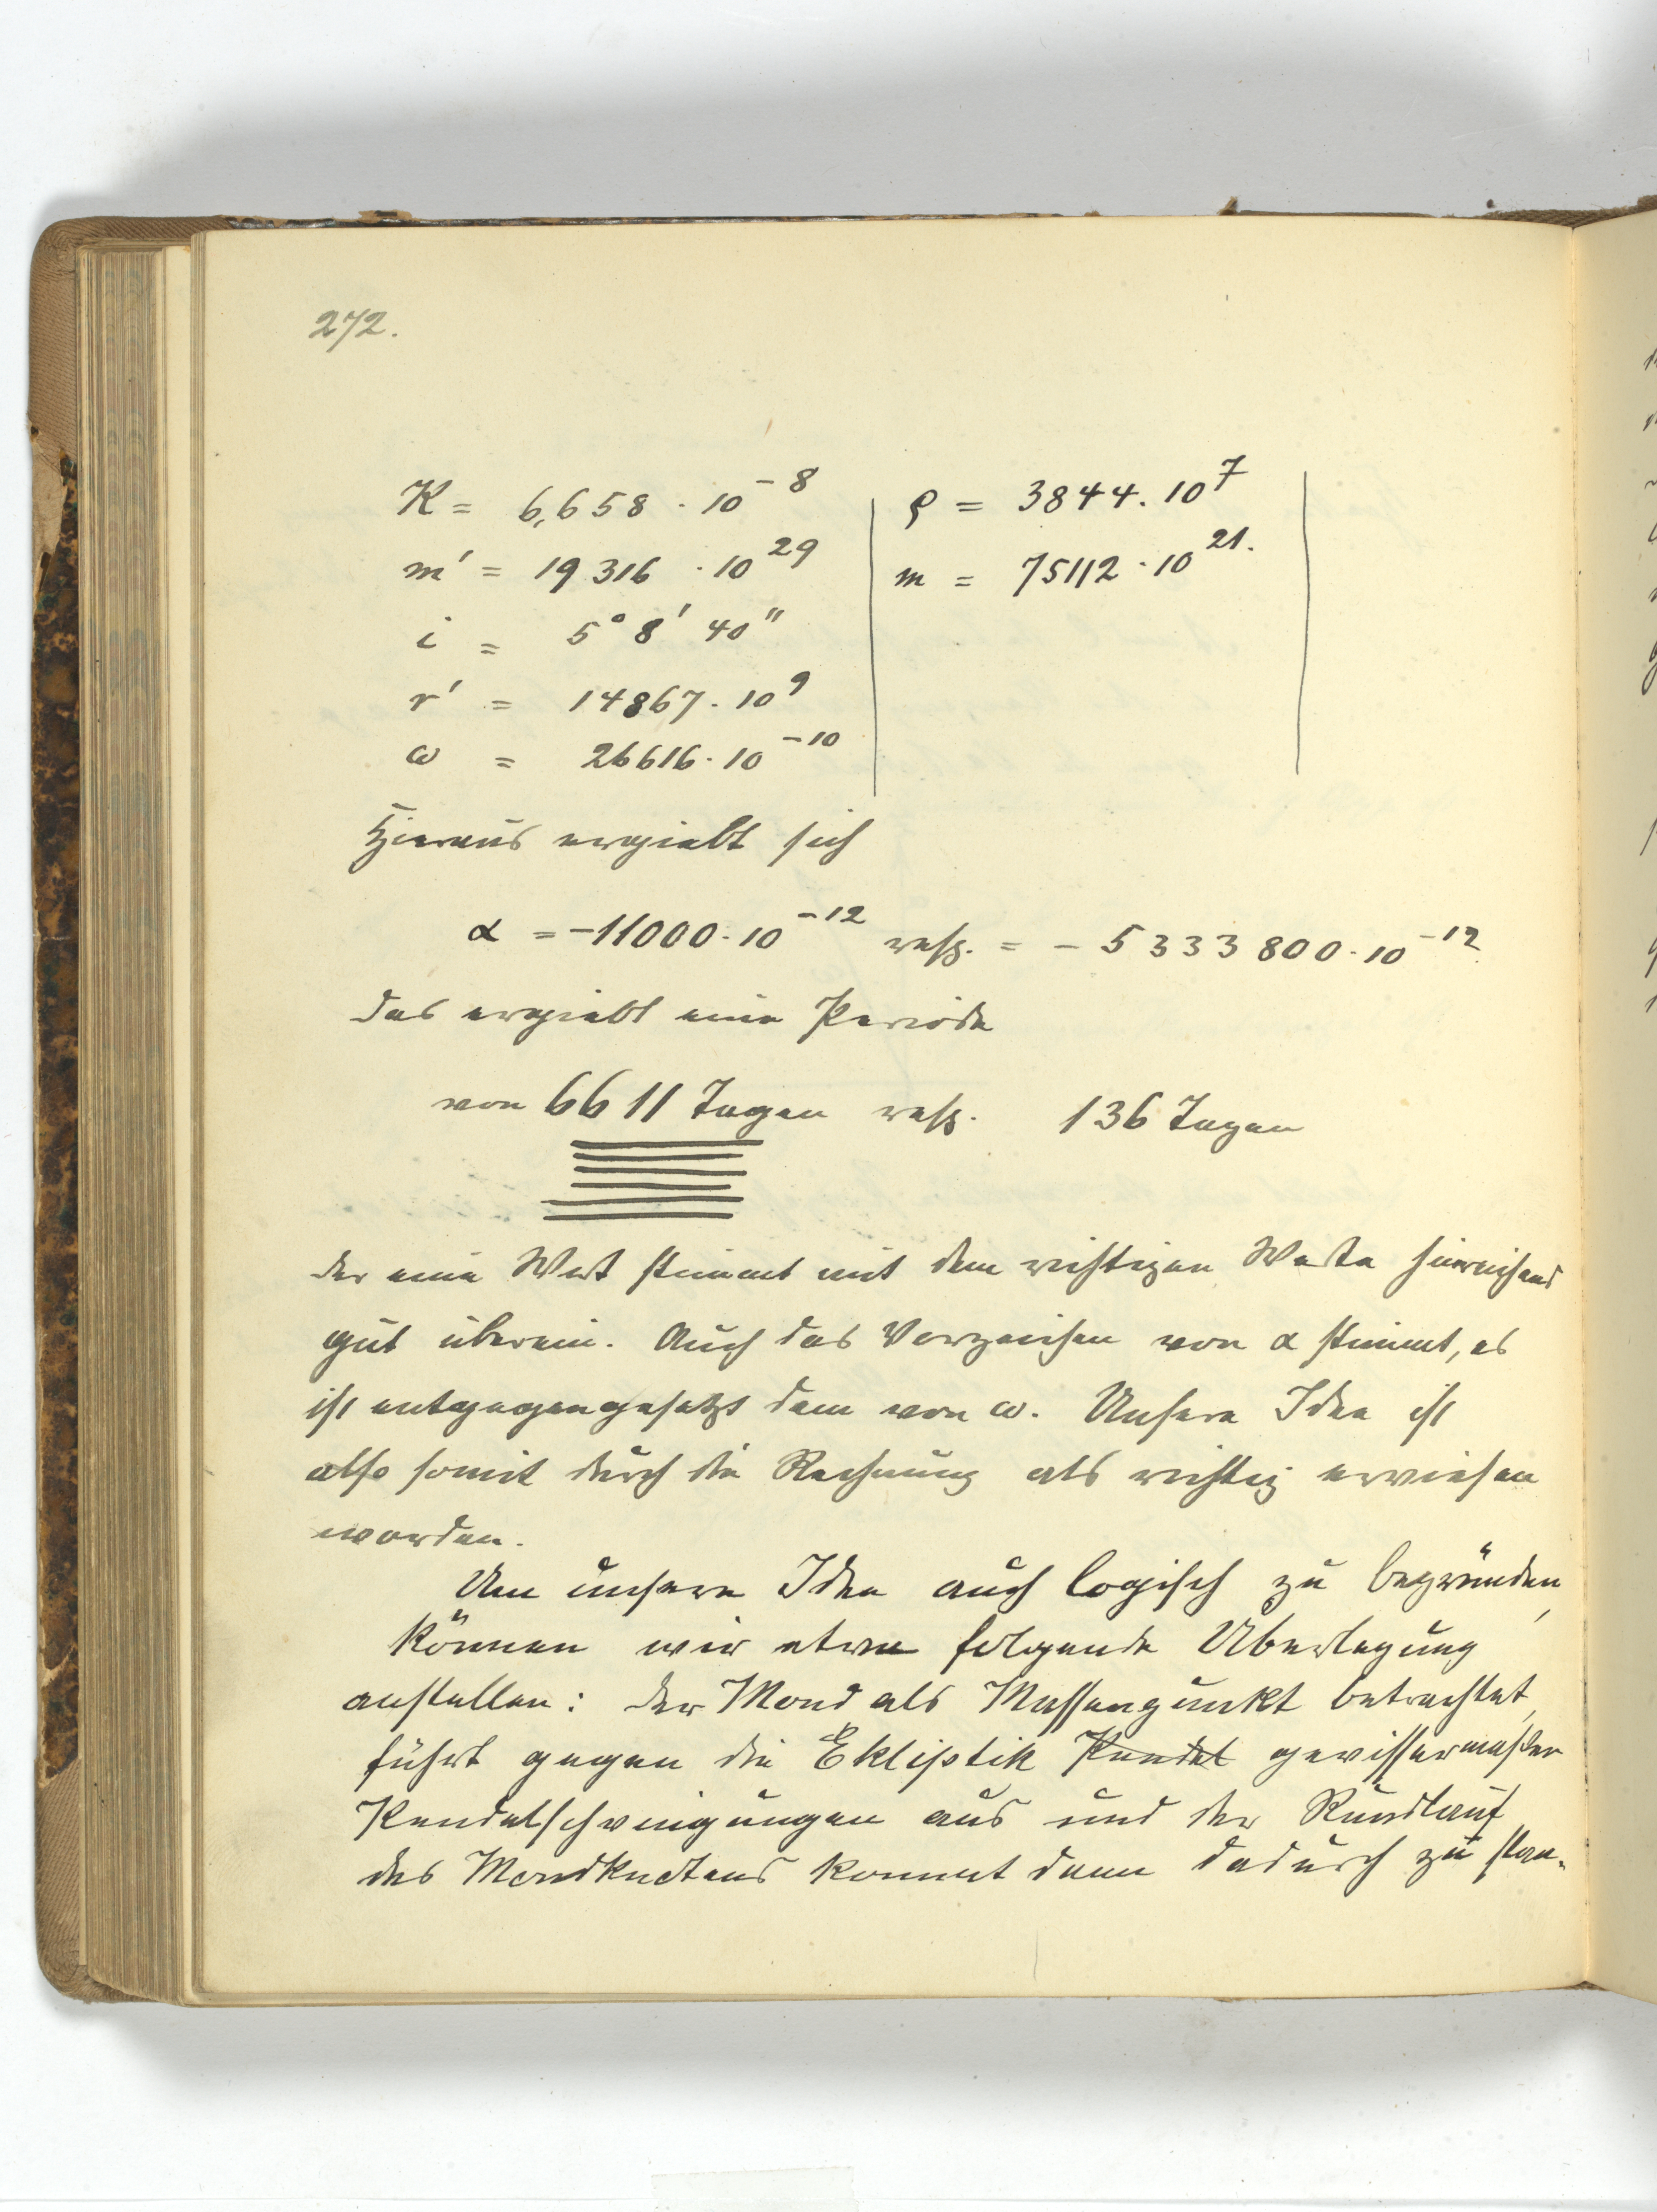 272.
K = 6,658 · 10⁻⁸ ϱ = 3844. 10⁷
m' = 19316 · 10²⁹ m = 75112 · 10²¹.
i = 5° 8' 40"
r' = 14867. 10⁹
ω = 26616. 10⁻¹⁰
Hieraus ergiebt sich
α = -11000. 10⁻¹² resp. = - 5333800. 10⁻¹²
das ergiebt eine Periode
von 6611 Tagen resp. 136 Tagen
der eine Wert stimmt mit dem richtigen Werte hinreichend
gut überein. Auch das Vorzeichen von α stimmt, es
ist entgegengesetzt dem von ω. Unsere Idee ist
also somit durch die Rechnung als richtig erwiesen
worden.
Um unsere Idee auch logisch zu begründen,
können wir etwa folgende Überlegung
anstellen: der Mond als Massenpunkt betrachtet,
führt gegen die Ekliptik Pendel gewissermaßen
Pendelschwingungen aus und der Rundlauf
des Mondknotens kommt dann dadurch zu stan-